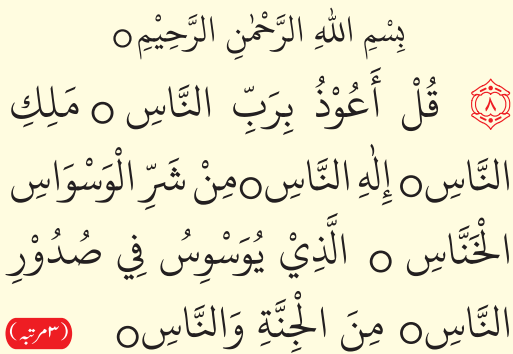 بِسْمِ اللهِ الرَّحْمٰنِ الرَّحِيْمِ○
۸ قُلْ أَعُوْذُ بِرَبِّ النَّاسِ ○ مَلِكِ
النَّاسِ○ إِلٰهِ النَّاسِ○مِنْ شَرِّ الْوَسْوَاسِ
الْخَنَّاسِ ○ الَّذِيْ يُوَسْوِسُ فِي صُدُوْرِ
النَّاسِ○ مِنَ الْجِنَّةِ وَالنَّاسِ○ (۳ مرتبہ)